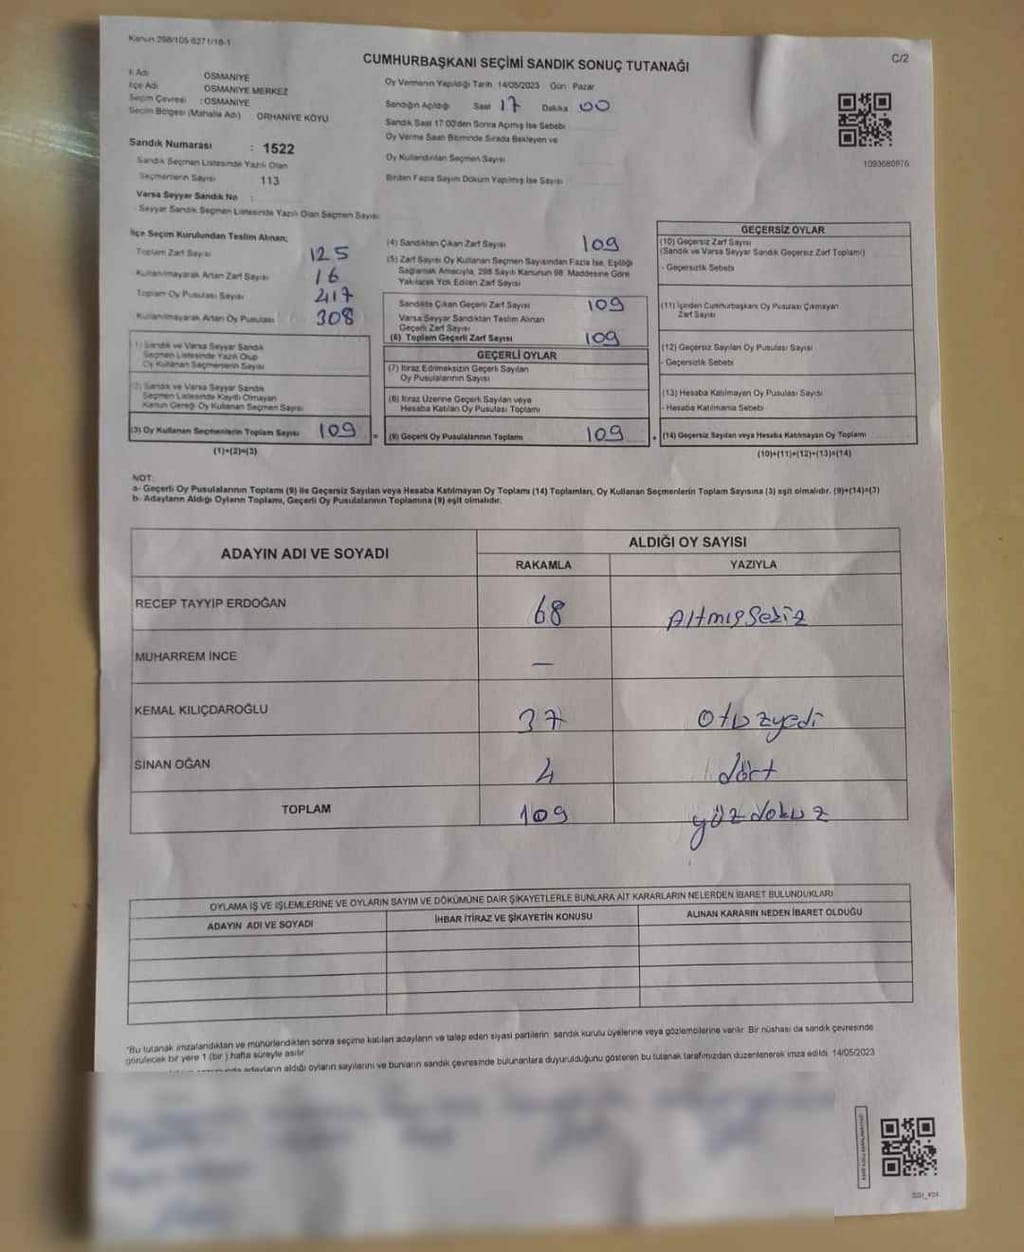 Kanun 298/105 6271/18-1
CUMHURBAŞKANI SEÇİMİ SANDIK SONUÇ TUTANAĞI
C/2
İl Adı OSMANİYE
İlçe Adı OSMANİYE MERKEZ
Seçim Çevresi : OSMANİYE
Seçim Bölgesi (Mahalle Adı) ORHANİYE KÖYÜ
Sandık Numarası : 1522
Sandık Seçmen Listesinde Yazılı Olan
Seçmenlerin Sayısı 113
Varsa Seyyar Sandık No :
Seyyar Sandık Seçmen Listesinde Yazılı Olan Seçmen Sayısı
Oy Vermenin Yapıldığı Tarih 14/05/2023 Gün Pazar
Sandığın Açıldığı Saat 17 Dakika 00
Sandık Saat 17:00'den Sonra Açmış İse Sebebi
Oy Verme Saati Bitiminde Sırada Bekleyen ve
Oy Kullandırılan Seçmen Sayısı
Birden Fazla Sayım Döküm Yapılmış İse Sayısı
1093680976
İlçe Seçim Kurulundan Teslim Alınan;
Toplam Zarf Sayısı 125
Kullanılmayarak Artan Zarf Sayısı 16
Toplam Oy Pusulası Sayısı 417
Kullanılmayarak Artan Oy Pusulası 308
(1) Sandık ve Varsa Seyyar Sandık
Seçmen Listesinde Yazılı Olup
Oy Kullanan Seçmenlerin Sayısı
(2) Sandık ve Varsa Seyyar Sandık
Seçmen Listesinde Kaydı Olmayan
Kanun Gereği Oy Kullanan Seçmen Sayısı
(3) Oy Kullanan Seçmenlerin Toplam Sayısı 109 =
(1)+(2)=(3)
(4) Sandıktan Çıkan Zarf Sayısı 109
(5) Zarf Sayısı Oy Kullanan Seçmen Sayısından Fazla İse, Eşitliği
Sağlamak Amacıyla, 298 Sayılı Kanunun 98. Maddesine Göre
Yakılarak Yok Edilen Zarf Sayısı
Sandıkta Çıkan Geçerli Zarf Sayısı 109
Varsa Seyyar Sandıktan Teslim Alınan
Geçerli Zarf Sayısı
(6) Toplam Geçerli Zarf Sayısı 109
GEÇERLİ OYLAR
(7) İtiraz Edilmeksizin Geçerli Sayılan
Oy Pusulalarının Sayısı
(8) İtiraz Üzerine Geçerli Sayılan veya
Hesaba Katılan Oy Pusulası Toplamı
(9) Geçerli Oy Pusulalarının Toplamı 109
GEÇERSİZ OYLAR
(10) Geçersiz Zarf Sayısı
(Sandık ve Varsa Seyyar Sandık Geçersiz Zarf Toplamı)
- Geçersizlik Sebebi
(11) İçinden Cumhurbaşkanı Oy Pusulası Çıkmayan
Zarf Sayısı
(12) Geçersiz Sayılan Oy Pusulası Sayısı
- Geçersizlik Sebebi
(13) Hesaba Katılmayan Oy Pusulası Sayısı
- Hesaba Katılmama Sebebi
(14) Geçersiz Sayılan veya Hesaba Katılmayan Oy Toplamı
(10)+(11)+(12)+(13)=(14)
NOT:
a- Geçerli Oy Pusulalarının Toplamı (9) ile Geçersiz Sayılan veya Hesaba Katılmayan Oy Toplamı (14) Toplamları, Oy Kullanan Seçmenlerin Toplam Sayısına (3) eşit olmalıdır. (9)+(14)=(3)
b- Adayların Aldığı Oyların Toplamı, Geçerli Oy Pusulalarının Toplamına (9) eşit olmalıdır.
ADAYIN ADI VE SOYADI
ALDIĞI OY SAYISI
RAKAMLA YAZIYLA
RECEP TAYYİP ERDOĞAN 68 Altmışsekiz
MUHARREM İNCE —
KEMAL KILIÇDAROĞLU 37 Otuzyedi
SİNAN OĞAN 4 dört
TOPLAM 109 yüzdokuz
OYLAMA İŞ VE İŞLEMLERİNE VE OYLARIN SAYIM VE DÖKÜMÜNE DAİR ŞİKAYETLERLE BUNLARA AİT KARARLARIN NELERDEN İBARET BULUNDUKLARI
ADAYIN ADI VE SOYADI İHBAR İTİRAZ VE ŞİKAYETİN KONUSU ALINAN KARARIN NEDEN İBARET OLDUĞU
*Bu tutanak imzalandıktan ve mühürlendikten sonra seçime katılan adayların ve talep eden siyasi partilerin sandık kurulu üyelerine veya gözlemcilerine verilir. Bir nüshası da sandık çevresinde
görülecek bir yere 1 (bir ) hafta süreyle asılır
adayların aldığı oyların sayılarını ve bunların sandık çevresinde bulunanlara duyurulduğunu gösteren bu tutanak tarafımızdan düzenlenerek imza edildi. 14/05/2023